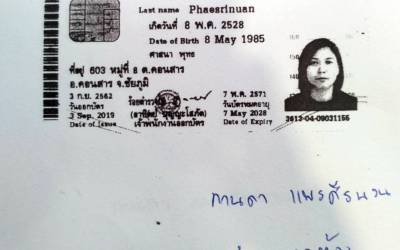 Last name Phaesrinuan
เกิดวันที่ 8 พ.ค. 2528
Date of Birth 8 May 1985
ศาสนา พุทธ
ที่อยู่ 603 หมู่ที่ 8 ต.คอนสาร
อ.คอนสาร จ.ชัยภูมิ
3 ก.ย. 2562
วันออกบัตร
3 Sep. 2019
Date of Issue
ร้อยตำรวจ
เจ้าพนักงานออกบัตร
7 พ.ค. 2571
วันบัตรหมดอายุ
7 May 2028
Date of Expiry
3613-04-09031155
กานดา แพรศรีนวน